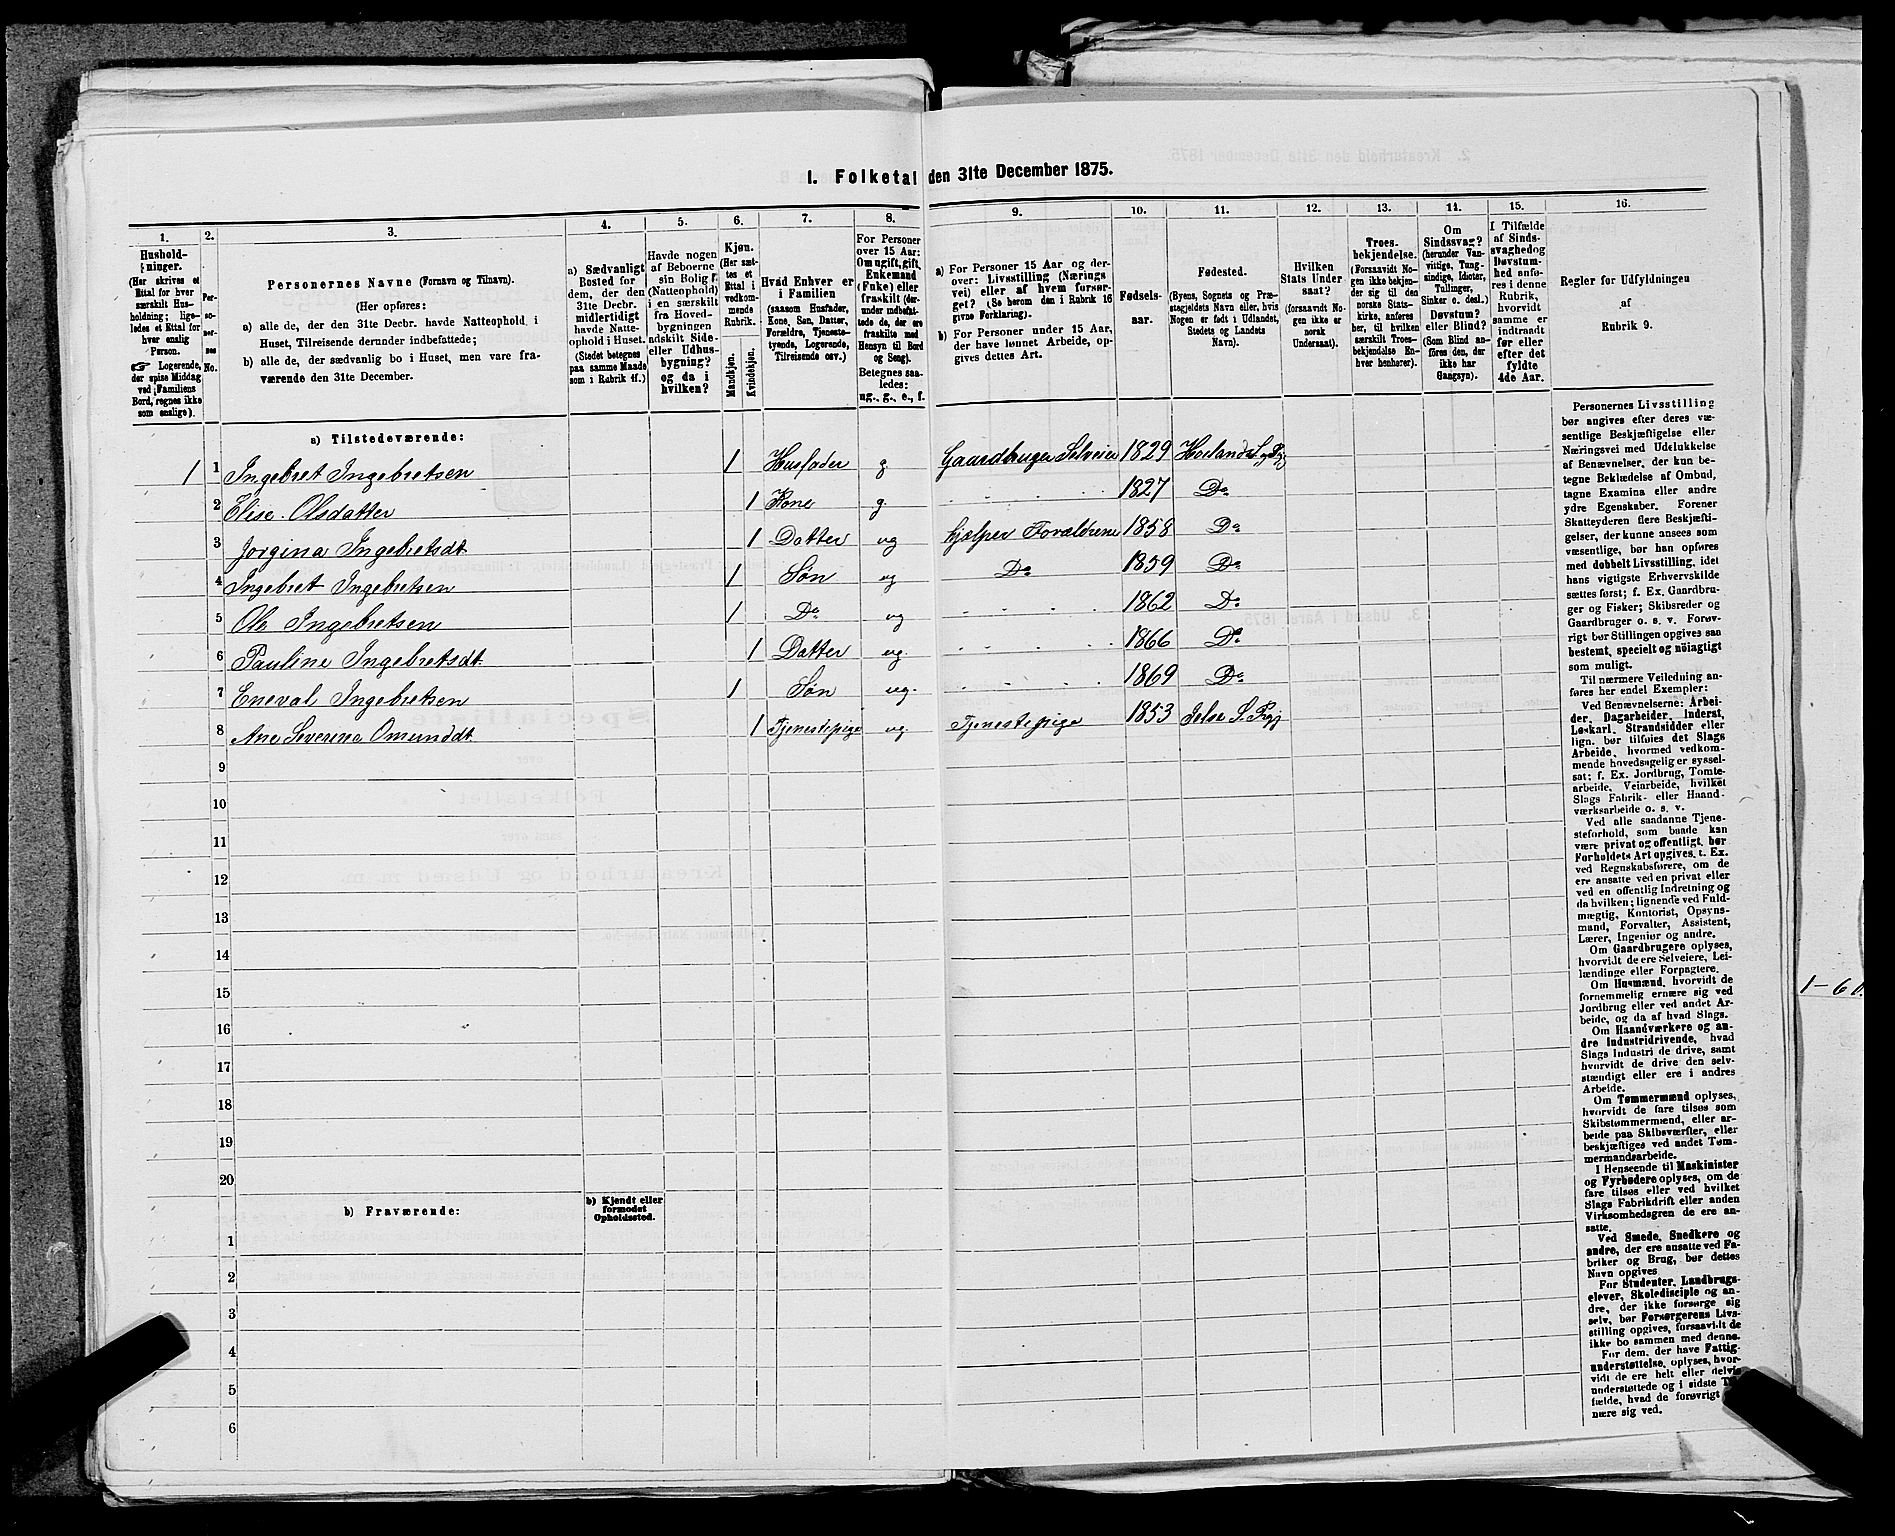 1. Folketal den 31te December 1875.
1. 2. 3. 4. 5. 6. 7. 8. 9. 10. 11. 12. 13. 14. 15. 16.
Hushold-
ninger.
(Her skrives et
Ettal for hver
særskilt Hus-
holdning; lige-
ledes et Ettal for
hver enslig
Person.
☞ Logerende,
der spise Middag
ved Familiens
Bord, regnes ikke
som enslige).
Per-
so-
ner-
nes
No.
Personernes Navne (Fornavn og Tilnavn).
(Her opføres:
a) alle de, der den 31te Decbr. havde Natteophold i
Huset, Tilreisende derunder indbefattede;
b) alle de, der sædvanlig bo i Huset, men vare fra-
værende den 31te December.
a) Sædvanligt
Bosted for
dem, der den
31te Decbr.
midlertidigt
havde Natte-
ophold i Huset.
(Stedet betegnes
paa samme Maade
som i Rubrik 11.)
Havde nogen
af Beboerne
sin Bolig
(Natteophold)
i en særskilt
fra Hoved-
bygningen
adskilt Side-
eller Udhus-
bygning?
og da i
hvilken?
Kjøn.
(Her sæt-
tes et
Ettal i
vedkom-
mende
Rubrik.
Mandkjøn.
Kvindekjøn.
Hvad Enhver er
i Familien
(saasom Husfader,
Kone, Søn, Datter,
Forældre, Tjeneste-
tyende, Logerende,
Tilreisende osv.)
For Personer
over 15 Aar:
Om ugift, gift,
Enkemand
(Enke) eller
fraskilt (der-
under indbefat-
tede de, der ere
fraskilte med
Hensyn til Bord
og Seng).
Betegnes saa-
ledes:
ug., g., e., f.
a) For Personer 15 Aar og der-
over: Livsstilling (Nærings-
vei) eller af hvem forsør-
get? (Se herom den i Rubrik 16
givne Forklaring).
b) For Personer under 15 Aar,
der have lønnet Arbeide, op-
gives dettes Art.
Fødsels-
aar.
Fødested.
(Byens, Sognets og Præ-
stegjeldets Navn eller, hvis
Nogen er født i Udlandet,
Stedets og Landets
Navn).
Hvilken
Stats Under
saat?
(forsaavidt No-
gen ikke er
norsk
Undersaat).
Troes-
bekjendelse.
(Forsaavidt No-
gen ikke bekjen-
der sig til den
norske Stats-
kirke, anføres
her, til hvilken
særskilt Troes-
bekjendelse En-
hver henhører).
Om
Sindssvag?
(herunder Van-
vittige, Tung-
sindige, Idioter,
Tullinger,
Sinker o. desl.)
Døvstum?
eller Blind?
(Som Blind an-
føres den, der
ikke har
Gangsyn).
I Tilfælde
af Sinds-
svaghed og
Døvstum-
hed anfø-
res i denne
Rubrik,
hvorvidt
samme er
indtraadt
før eller
efter det
fyldte
4de Aar.
Regler for Udfyldningen
af
Rubrik 9.
a) Tilstedeværende:
1 1 Ingebret Ingebretsen 1 Husfader g Gaardbruger Selveier 1829
2 Elise Olsdatter 1 Kone g. 1827 Do
3 Jorgina Ingebretsdt 1 Datter ug hjælper Forældrene 1858 Do
4 Ingebret Ingebretsen 1 Søn ug Do 1859 Do
5 Ole Ingebretsen 1 Do ug 1862 Do
6 Pauline Ingebretsdt 1 Datter ug. 1866 Do
7 Eneval Ingebretsen 1 Søn ug. 1869 Do
8 Ane Severina Omunddt 1 Tjenestepige ug. Tjenestepige 1853 Jelse S. Pgj
9
10
11
12
13
14
15
16
17
18
19
20
b) Fraværende:
b) Kjendt eller
formodet
Opholdssted.
1
2
3
4
5
6
Personernes Livsstilling
bør angives efter deres væ-
sentlige Beskjæftigelse eller
Næringsvei med Udelukkelse
af Benævnelser, der kun be-
tegne Beklædelse af Ombud,
tagne Examina eller andre
ydre Egenskaber. Forener
Skatteyderen flere Beskjæfti-
gelser, der kunne ansees som
væsentlige, bør han opføres
med dobbelt Livsstilling, idet
hans vigtigste Erhvervskilde
sættes først; f. Ex. Gaardbru-
ger og Fisker; Skibsreder og
Gaardbruger o. s. v. Forøv-
rigt bør Stillingen opgives saa
bestemt, specielt og nøiagtigt
som muligt.
Til nærmere Veiledning an-
føres her endel Exempler:
Ved Benævnelserne: Arbei-
der, Dagarbeider, Inderst,
Løskarl, Strandsidder eller
lign. bør tilføies det Slags
Arbeide, hvormed vedkom-
mende hovedsagelig er syssel-
sat; f. Ex. Jordbrug, Tomte-
arbeide, Veiarbeide, hvilket
Slags Fabrik- eller Haand-
værksarbeide o. s. v.
Ved alle saadanne Tjene-
steforhold, som baade kan
være privat og offentligt, bør
Forholdets Art opgives, t. Ex.
ved Regnskabsførere, om de
ere ansatte ved en privat eller
ved en offentlig Indretning og
da hvilken; lignende ved Fuld-
mægtig, Kontorist, Opsyns-
mand, Forvalter, Assistent,
Lærer, Ingeniør og andre.
Om Gaardbrugere oplyses,
hvorvidt de ere Selveiere, Lei-
lændinge eller Forpagtere.
Om Husmænd, hvorvidt de
fornemmelig ernære sig ved
Jordbrug eller ved andet Ar-
beide, og da af hvad Slags.
Om Haandværkere og an-
dre Industridrivende, hvad
Slags Industri de drive, samt
hvorvidt de drive den selv-
stændigt eller ere i andres
Arbeide.
Om Tømmermænd oplyses,
hvorvidt de fare tilsøs som
Skibstømmermænd, eller ar-
beide paa Skibsværfter, eller
beskjæftiges ved andet Tøm-
mermandsarbeide.
I Henseende til Maskinister
og Fyrbødere oplyses, om de
fare tilsøs eller ved hvilket
Slags Fabrikdrift eller anden
Virksomhedsgren de ere an-
satte.
Ved Smede, Snedkere og
andre, der ere ansatte ved Fa-
briker og Brug, bør dettes
Navn opgives
For Studenter, Landbrugs-
elever, Skoledisciple og an-
dre, der ikke forsørge sig
selv, bør Forsørgerens Livs-
stilling opgives, forsaavidt de
ikke bo sammen med denne.
For dem, der have Fattig-
understøttelse, oplyses, hvor-
vidt de ere helt eller delvis
understøttede og i sidste
fælde, hvad de forøvrigt
nære sig ved.